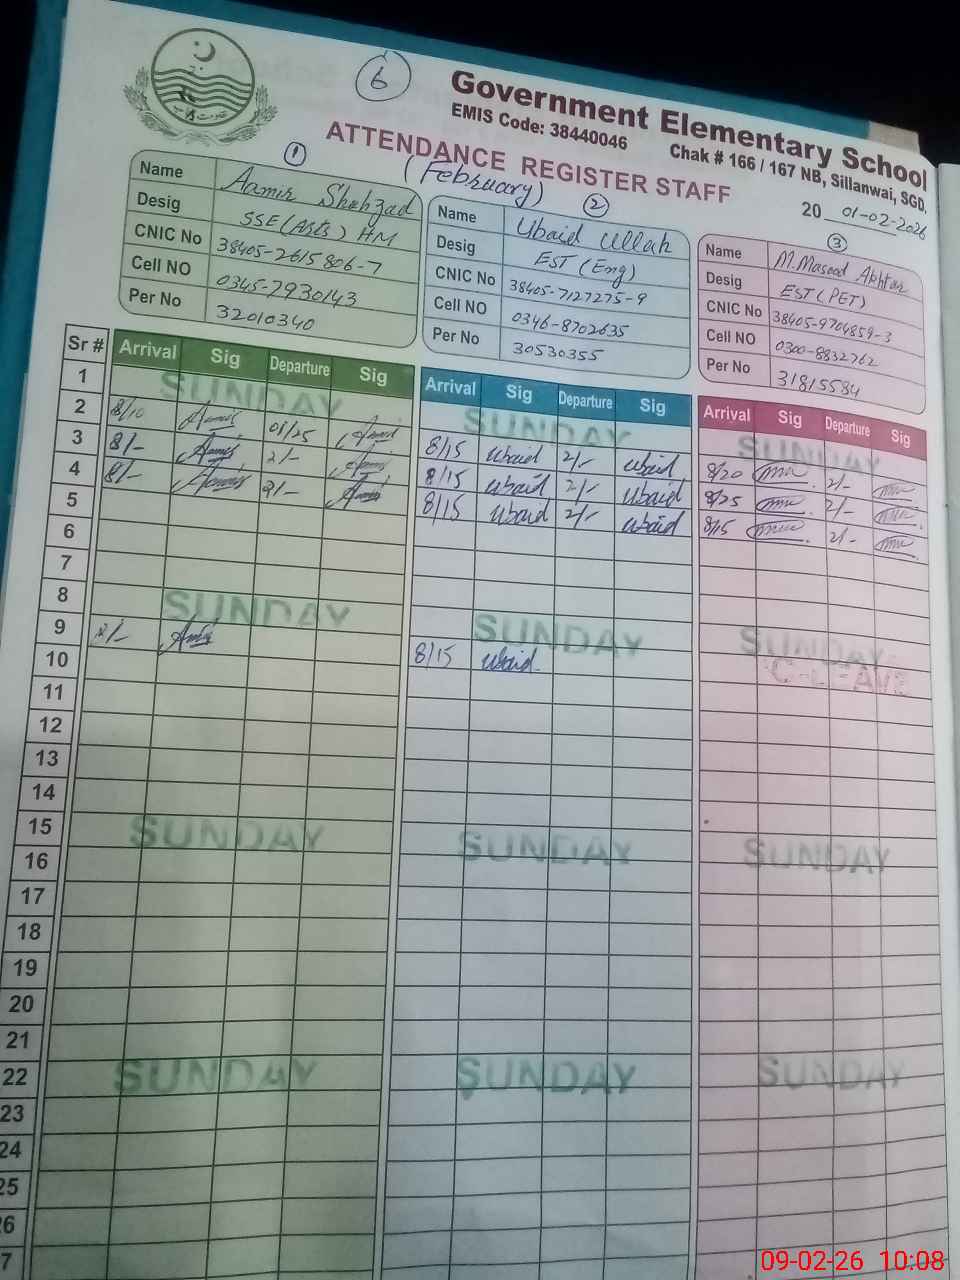 6
Government Elementary School
EMIS Code: 38440046
Chak # 166 / 167 NB, Sillanwai, SGD.
ATTENDANCE REGISTER STAFF
(February)
20 01-02-2026
1
Name Aamir Shehzad
Desig SSE(Arts) HM
CNIC No 38405-2615806-7
Cell NO 0345-7930143
Per No 32010340
2
Name Ubaid Ullah
Desig EST (Eng)
CNIC No 38405-7127275-9
Cell NO 0346-8702635
Per No 30530355
3
Name M.Masood Akhtar
Desig EST(PET)
CNIC No 38405-9704859-3
Cell NO 0300-8832762
Per No 31815584
Sr # Arrival Sig Departure Sig Arrival Sig Departure Sig Arrival Sig Departure Sig
1 SUNDAY SUNDAY SUNDAY
2 8/10 Aamir 01/25 Aamir 8/15 ubaid 2/- ubaid 8/20 2/-
3 8/- Aamir 2/- Aamir 8/15 ubaid 2/- ubaid 8/25 2/-
4 8/- Aamir 2/- Aamir 8/15 ubaid 2/- ubaid 8/15 2/-
5
6
7
8 SUNDAY SUNDAY SUNDAY
9 8/- Aamir 8/15 ubaid
10
11
12
13
14
15 SUNDAY SUNDAY SUNDAY
16
17
18
19
20
21
22 SUNDAY SUNDAY SUNDAY
23
24
25
26
27
09-02-26 10:08